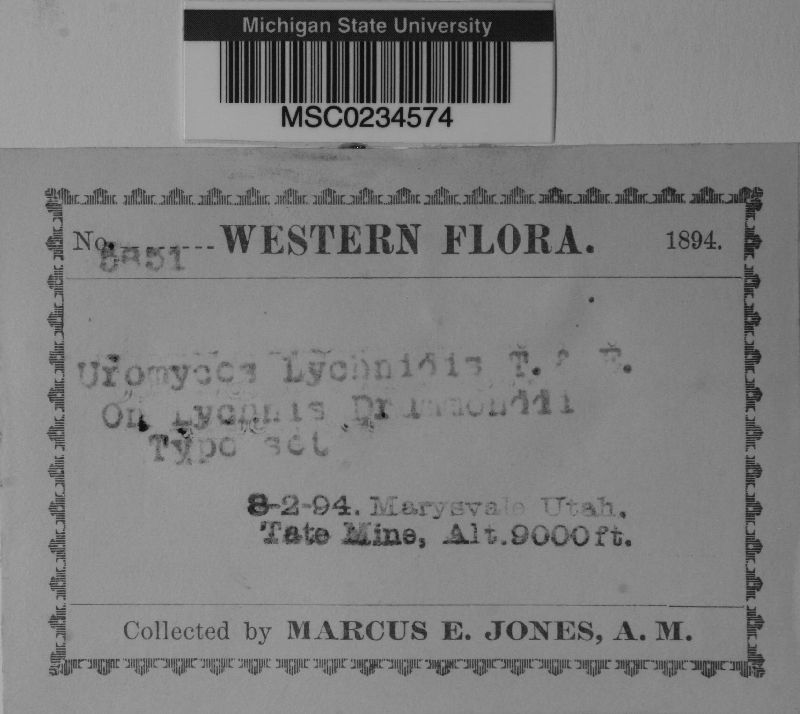 Michigan State University
MSC0234574
No. 5851 WESTERN FLORA. 1894.
Uromyces Lychnidis T. & E.
On Lychnis Drummondii
Type set
8-2-94. Marysvale Utah,
Tate Mine, Alt.9000ft.
Collected by MARCUS E. JONES, A. M.